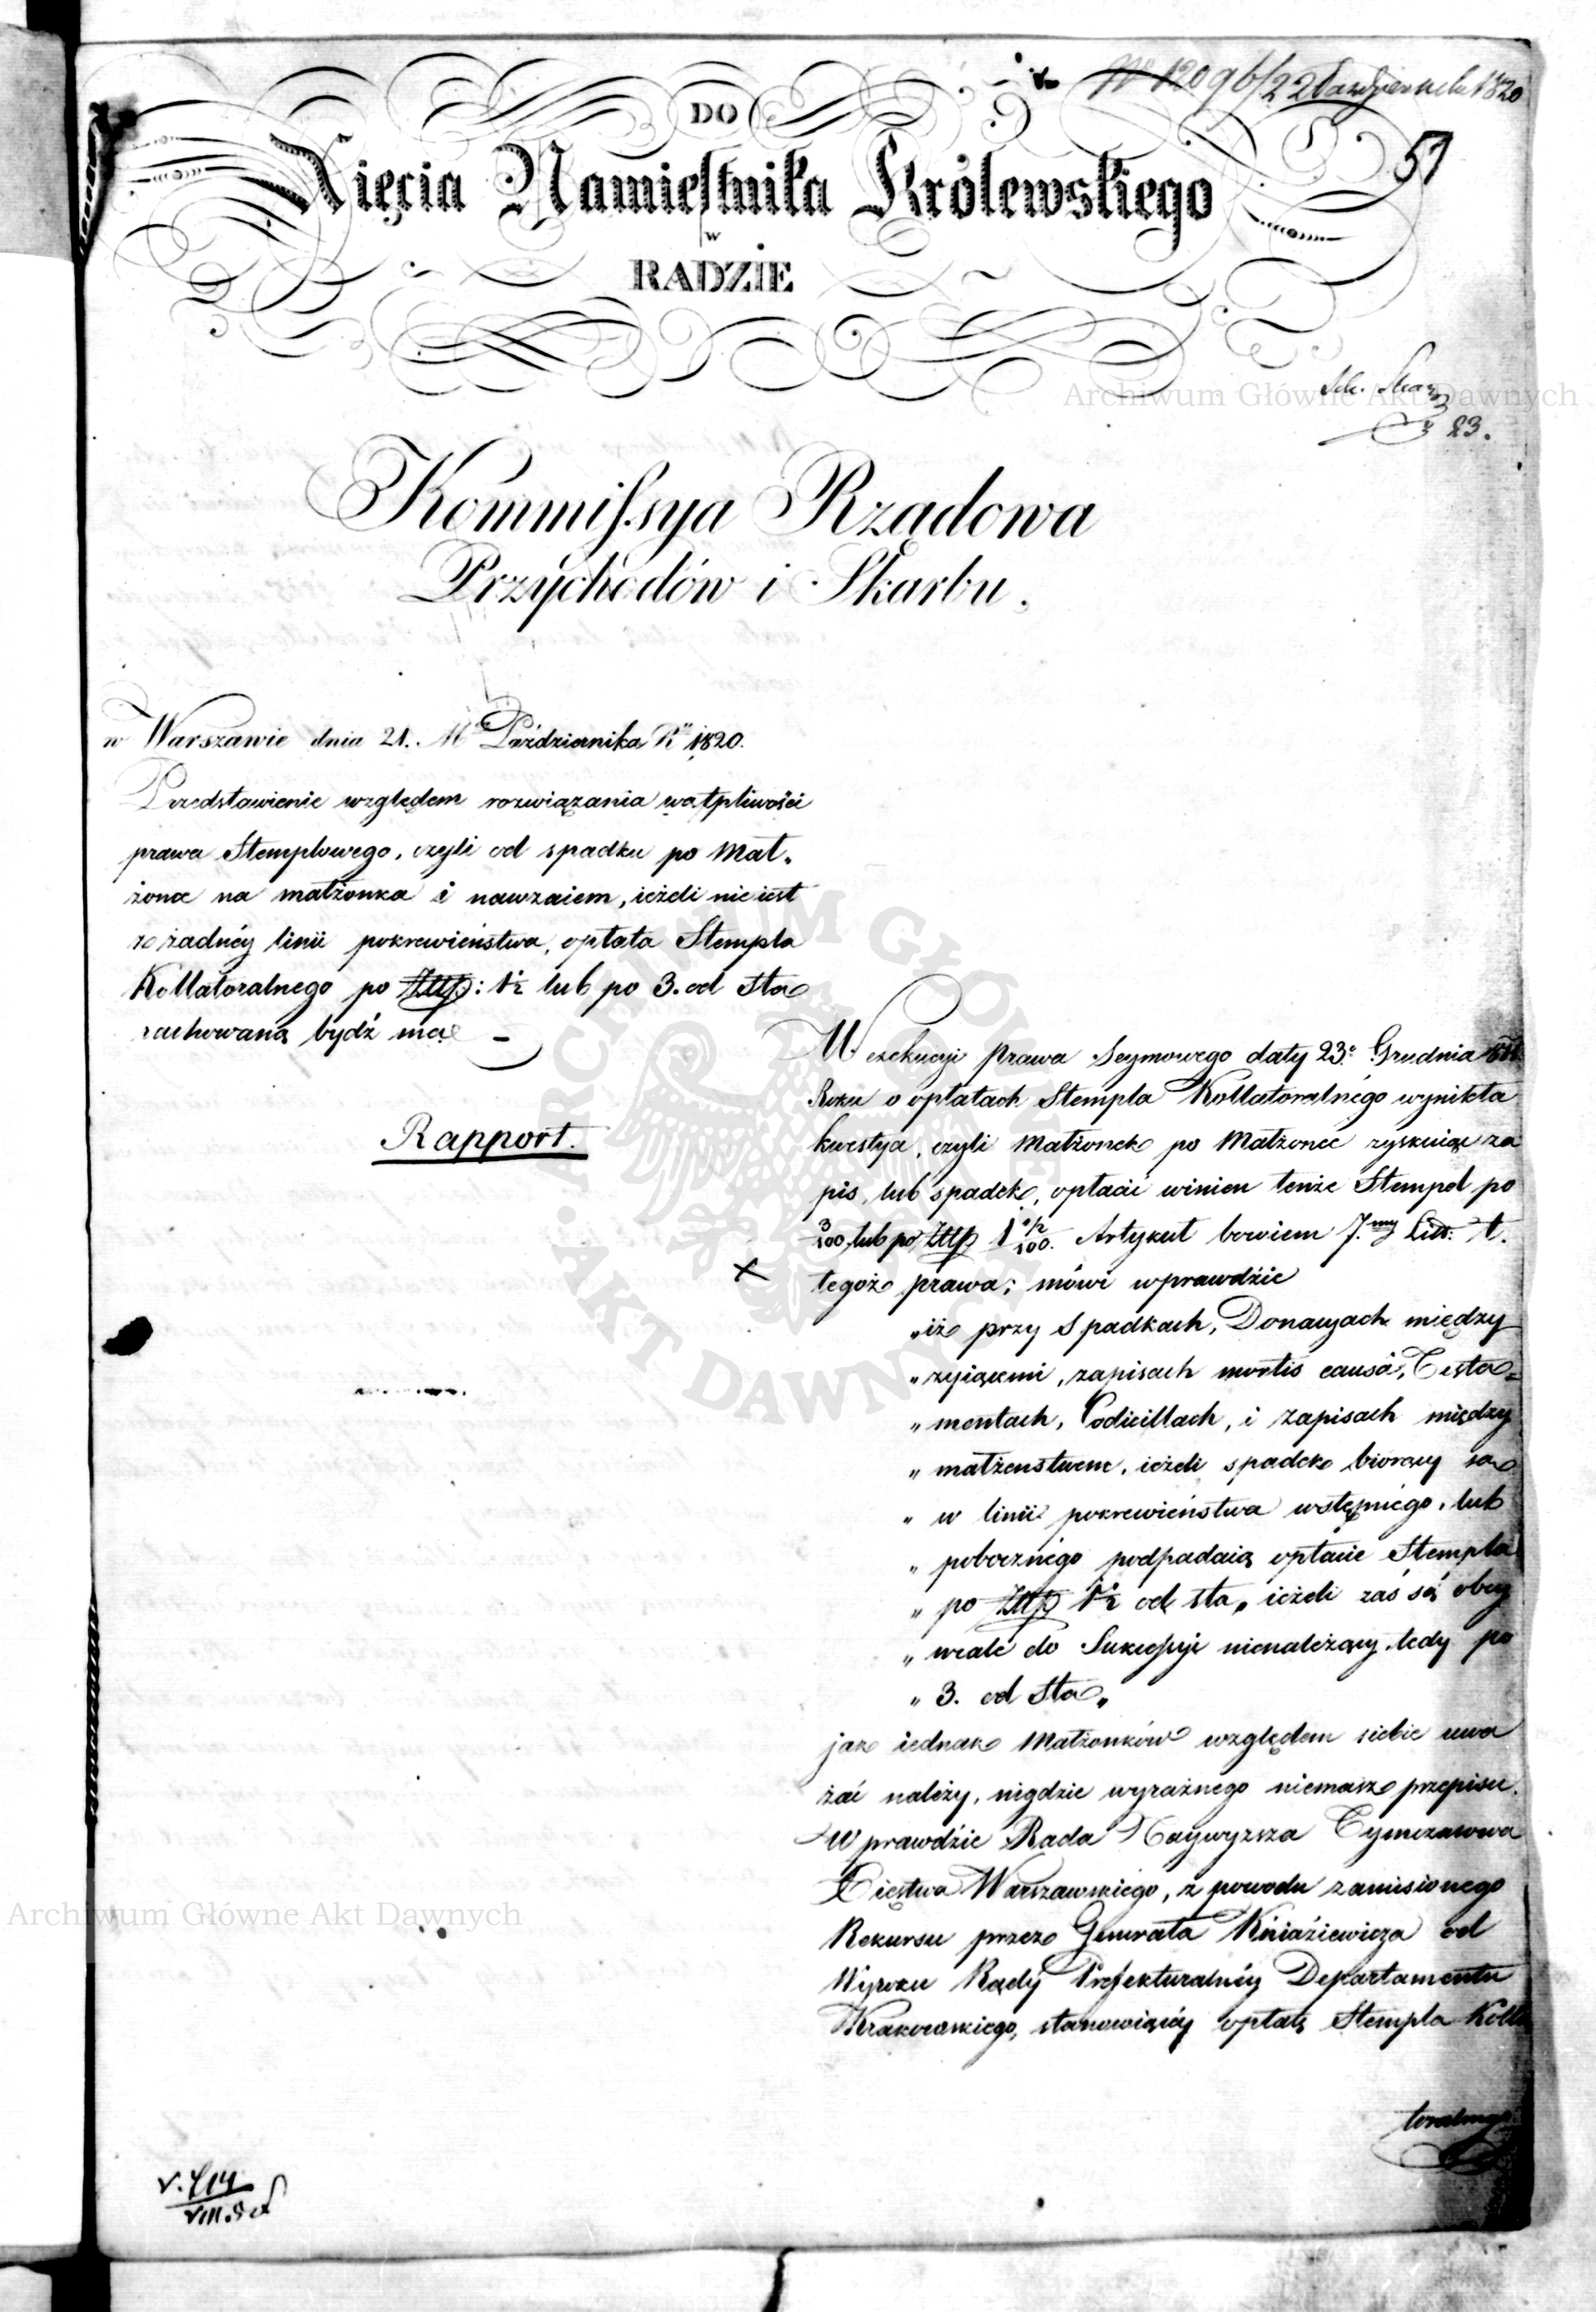 No 12096/22 Października 1820
57
DO
Xięcia Namiestnika Królewskiego
w
RADZIE
23.
Kommissya Rządowa
Przychodów i Skarbu.
w Warszawie dnia 21. Mca Października Ru 1820.
Przedstawienie względem rozwiązania wątpliwości
prawa Stemplowego, czyli od spadku po Mał„
żonce na małżonka i nawzaiem, ieżeli nie iest
w żadnéy linii pokrewieństwa, opłata Stempla
Kollateralnego po Złłp: 1½ lub po 3. od Sta
rachowaną bydź ma –
Rapport.
W exekucyi prawa Seymowego daty 23o Grudnia 1811
Roku o opłatach Stempla Kollateralnégo wynikła
kwestya, czyli Małżonek po Małżonce zyskuiąc za
pis, lub spadek, opłacić winien tenże Stempel po
3/100 lub po Złłp 1 ½/100. Artykuł bowiem 7.my Litt: A.
tegoż prawa; mówi wprawdzie
„iż przy Spadkach, Donacyach między
„żyiącemi, zapisach mortis causa, Testa=
„mentach, Codicillach, i zapisach między
„małżeństwem, ieżeli spadek biorący są
„w linii pokrewieństwa wstępnégo, lub
„pobocznégo podpadaią opłacie Stempla
„po Złłp 1½ od sta, ieżeli zaś są obcy
„wcale do Sukcessyi nienależący, tedy po
„3. od Sta„
jak iednak Małżonków względem siebie uwa
żać należy, nigdzie wyraźnego niemasz przepisu.
Wprawdzie Rada Naywyższa Tymczasowa
Xięstwa Warszawskiego, z powodu zaniesionego
Rekursu przez Generała Kniaziewicza od
Wyroku Rady Prefekturalnéy Departamentu
Krakowskiego, stanowiącéy opłatę Stempla Kolla
teralnego
Archiwum Główne Akt Dawnych
Archiwum Główne Akt Dawnych
ARCHIWUM GŁÓWNE · AKT DAWNYCH ·